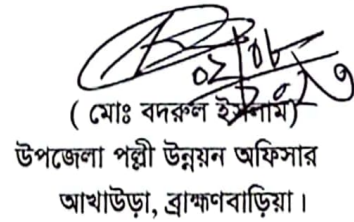 ( মোঃ বদরুল ইসলাম)
উপজেলা পল্লী উন্নয়ন অফিসার
আখাউড়া, ব্রাহ্মণবাড়িয়া।